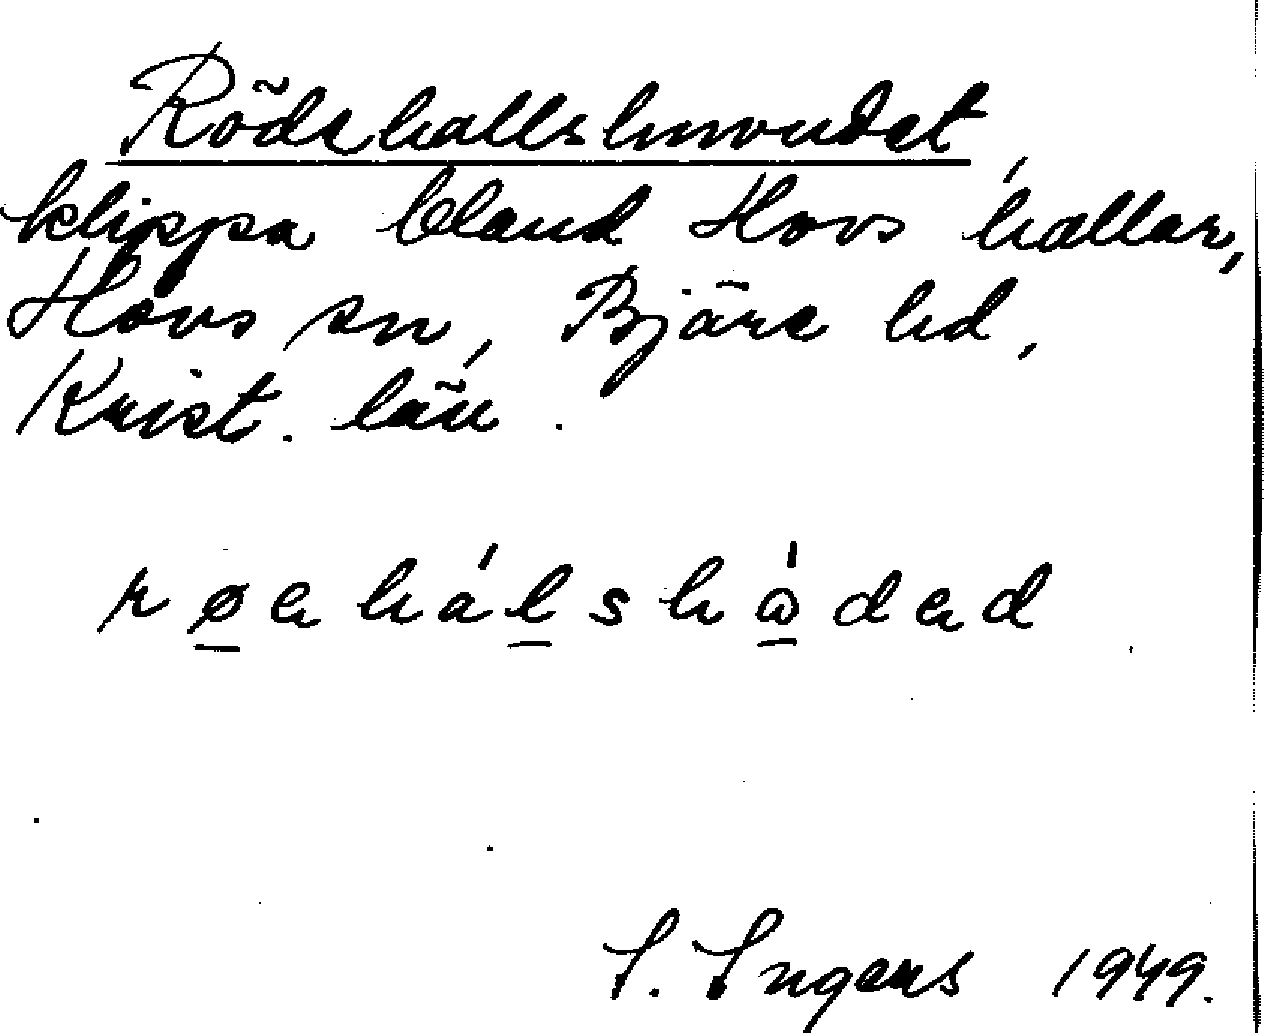 Rödehallshuvudet,
klippa bland Hovs hallar,
Hovs sn, Bjäre hd,
Krist. län.
røahálshɷ́dad
I. Ingers 1949.